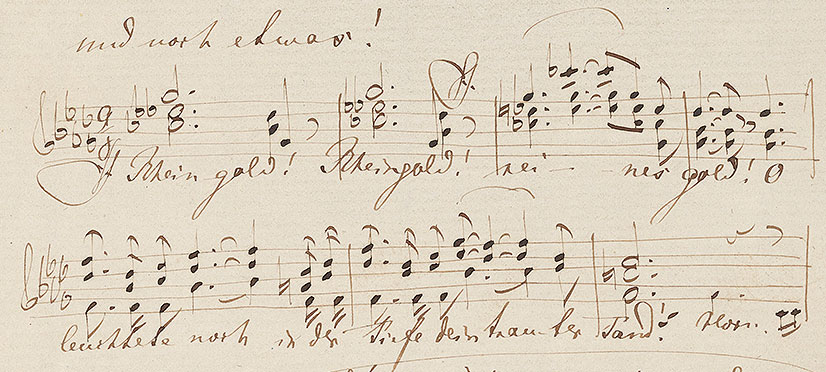 und noch etwas!
Rheingold! Rheingold! rei - nes Gold! O
leuchtete noch in der Tiefe dein trauter Tand!